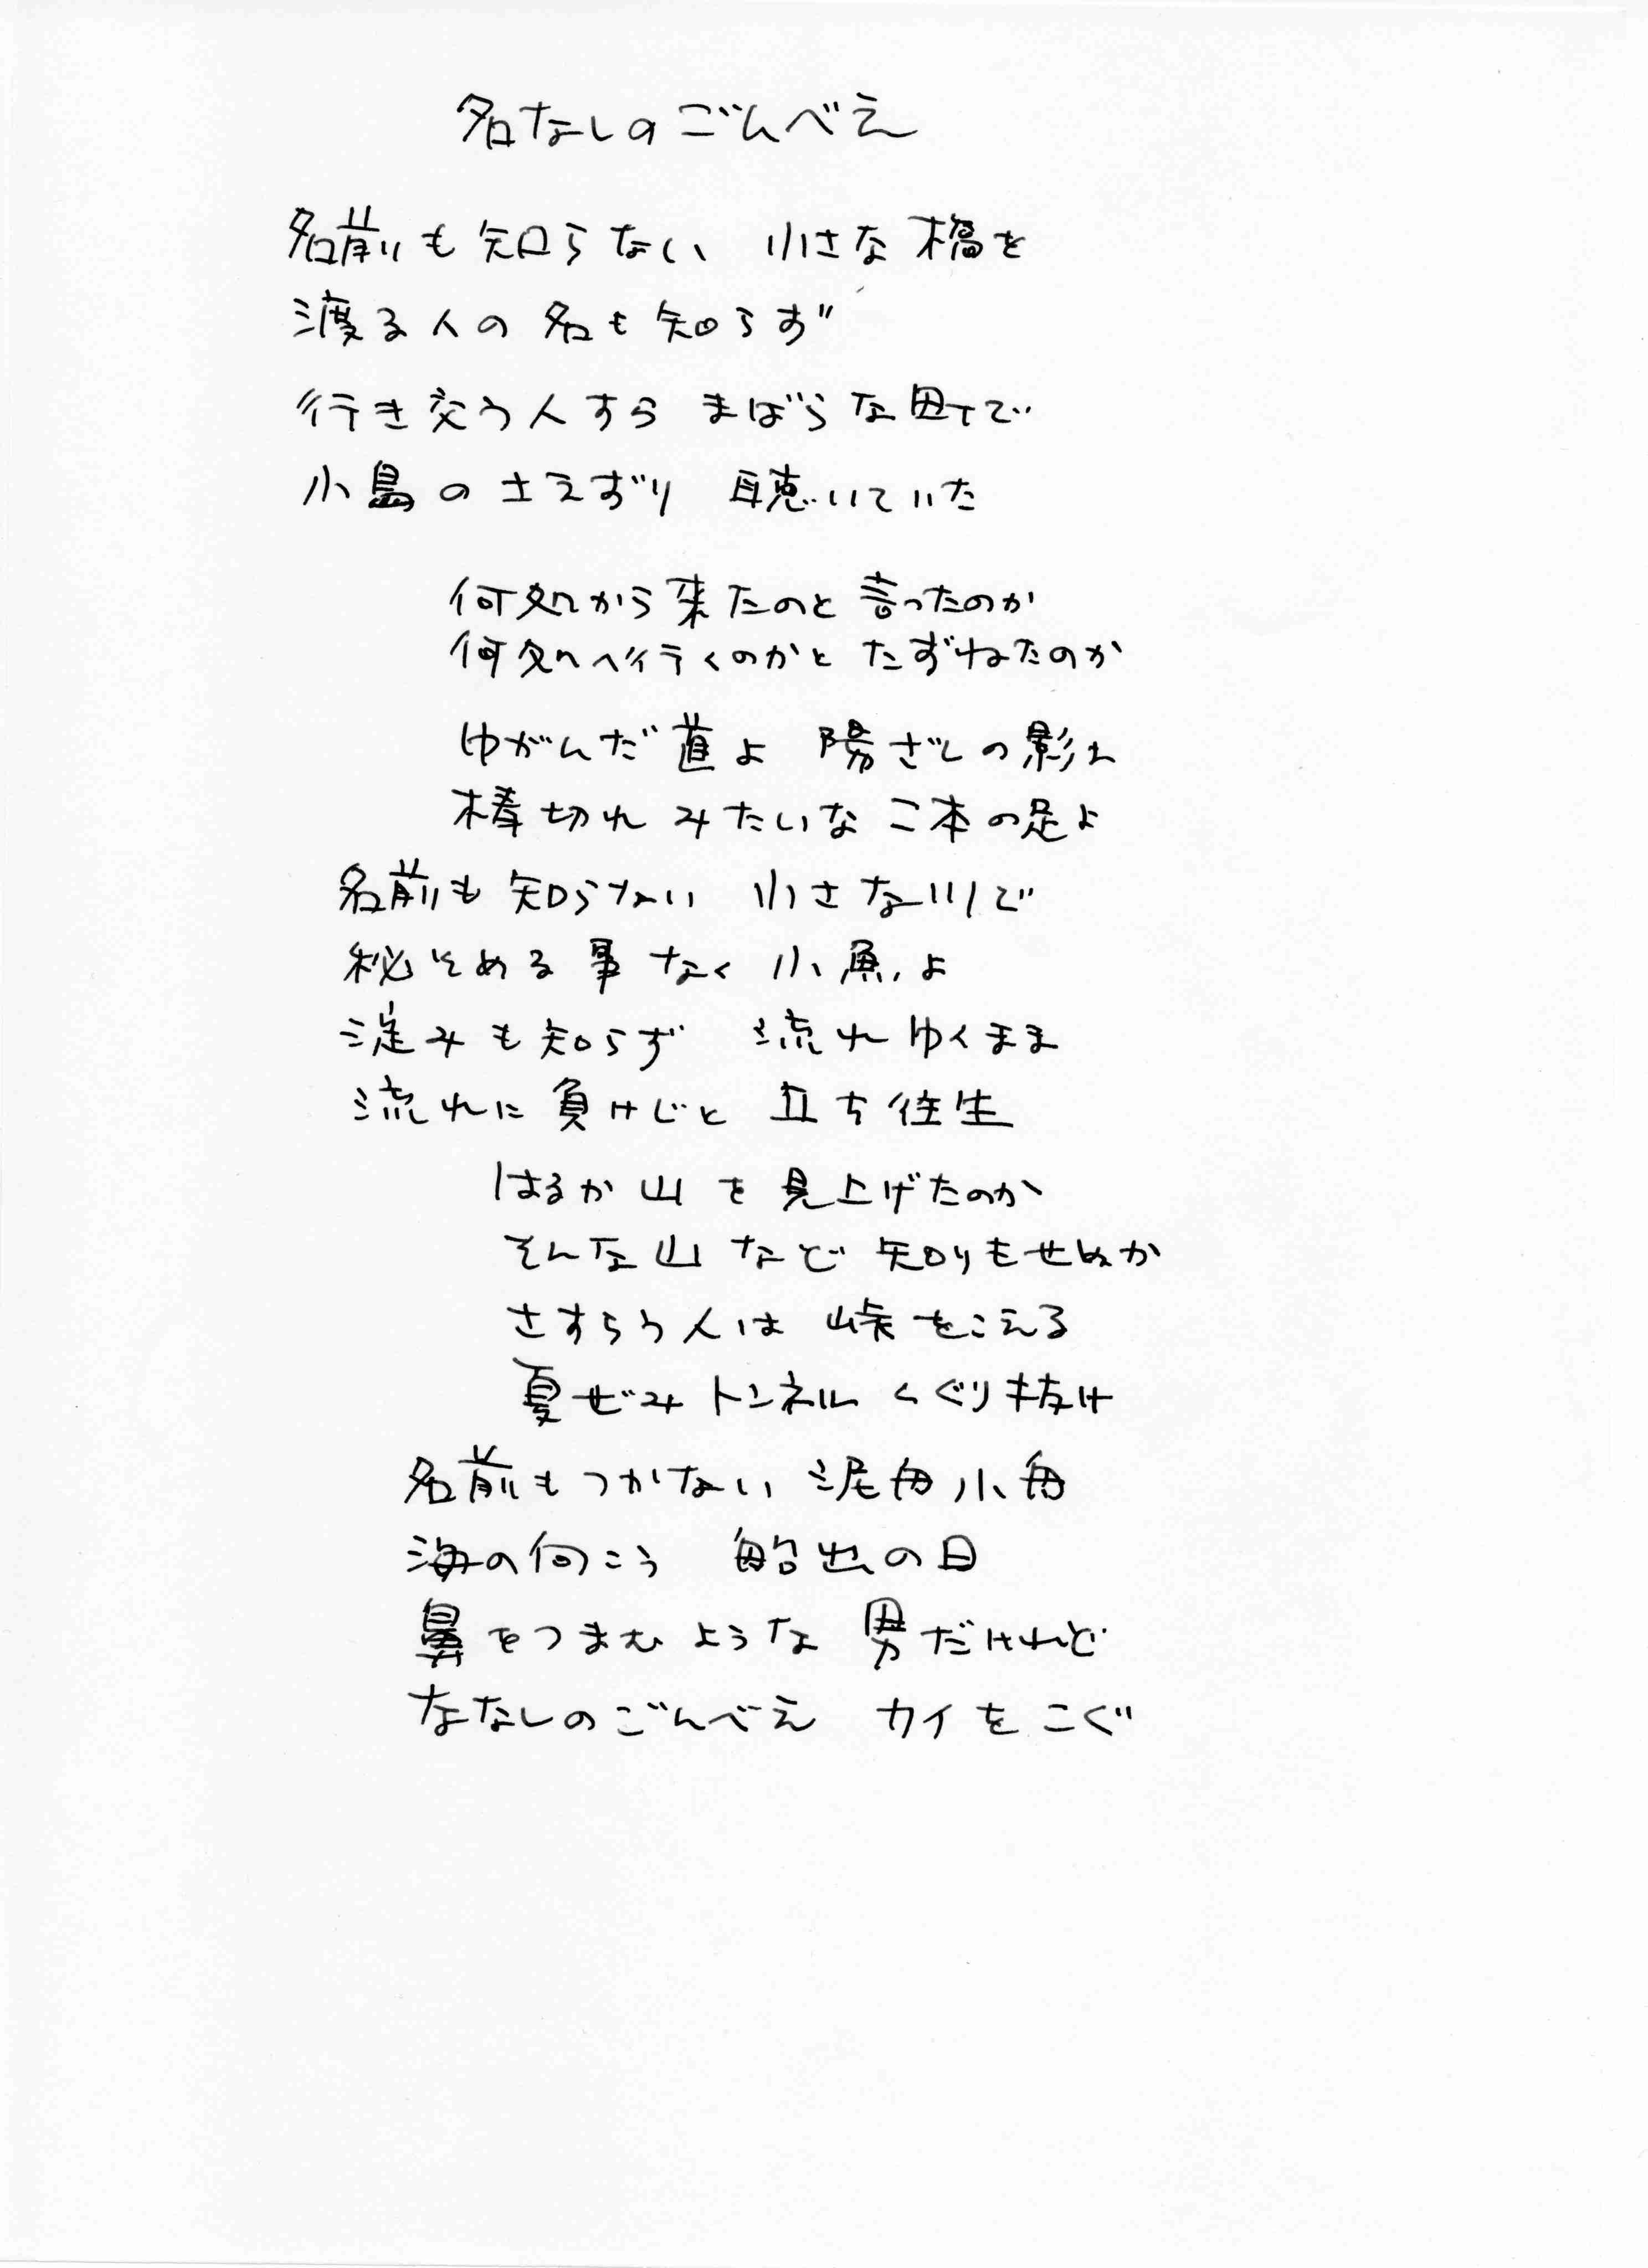 名なしのごんべえ
名前も知らない 小さな橋を
渡る人の名も知らず
行き交う人すら まばらな町で
小鳥のさえずり 聴いていた
何処から来たのと 言ったのか
何処へ行くのかと たずねたのか
ゆがんだ道よ 陽ざしの影よ
棒切れみたいな 二本の足よ
名前も知らない 小さな川で
秘そめる事なく 小魚よ
淀みも知らず 流れゆくまま
流れに負けじと 立ち往生
はるか山を見上げたのか
そんな山など 知りもせぬか
さすらう人は 峠をこえる
夏ぜみトンネル くぐり抜け
名前もつかない 泥舟小舟
海の向こう 船出の日
鼻をつまむような 男だけれど
ななしのごんべえ カイをこぐ